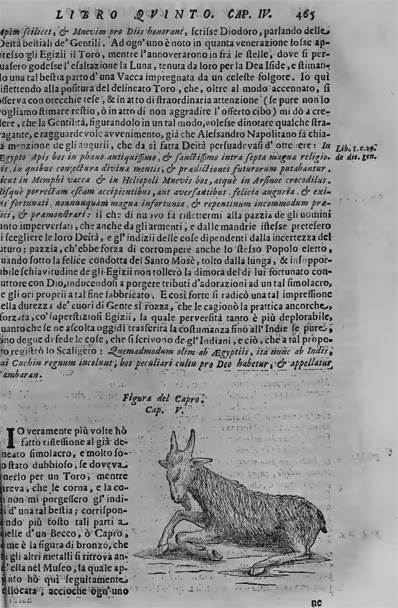 LIBRO QVINTO. CAP. IV. 465
Apim scilicet, & Mnevim pro Diis honorant, scrisse Diodoro, parlando delle
Deità bestiali de' Gentili. Ad ogn'uno è noto in quanta venerazione fosse ap-
presso gl'Egizii il Toro, mentre l'annoverarono in frà le stelle, dove si per-
uasero godesse l'esaltazione la Luna, tenuta da loro per la Dea Iside, e stiman-
lo una tal bestia parto d'una Vacca impregnata da un celeste folgore. Io quì
riflettendo alla positura del delineato Toro, che, oltre al modo accennato, si
osserva con orecchie tese, & in atto di straordinaria attenzione (se pure non lo
vogliamo stimare restio, ò in atto di non aggradire l'offerto cibo) mi dò à cre-
dere, che la Gentilità, figurandolo in un tal modo, volesse dinotare qualche stra-
vagante, e ragguardevole avvenimento, già che Alessandro Napolitano fà chia-
a menzione degli augurii, che da sì fatta Deità persuadevasi d'ottenere: In
Egypto Apis bos in phano antiquissimo, & sanctissimo intra septa magna religio-
is, in quibus conjectura divina mentis, & prædictiones futurorum putabantur.
icut in Memphi vacca et in Helopoli Mnevis bos, atque in Arsinoe crocodilus.
isque porrectam escam accipientibus, aut aversantibus felicia auguria, & exi-
us fortunati, nonnunquam magna infortunia, & repentinum incommodum præ-
ici, & præmonstrari: il che di nuovo fà riflettermi alla pazzia degli uomini
anto imperversati, che anche da gli armenti, e dalle mandrie istesse pretesero
i scegliere le loro Deità, e gl'indizii delle cose dipendenti dalla incertezza del
uturo; pazzia, ch'ebbe forza di corrompere anche lo stesso Popolo eletto,
uando sotto la felice condotta del Santo Mosè, tolto dalla lunga, & insoppor-
abile schiavitudine degli Egizii non tollerò la dimora del di lui fortunato con-
uttore con Dio, inducendosi a porgere tributi d'adorazioni ad un tal simolacro,
e gli ori proprii a tal fine fabbricato. E così forte si radicò una tal impressione
ella durezza de' cuori di Gente sì rozza, che le cagionò la prattica ancorche
forzata, co' superstiziosi Egizii, la quale perversità tanto è più deplorabile,
uanto che se ne ascolta oggidì trasferita la costumanza sino all'Indie se pure
ono degne di fede le cose, che si scrivono de gl'Indiani, e ciò, che a tal propo-
to registrò lo Scaligero: Quemadmodum olim ab Ægyptiis, ita nunc ab Indis,
ui Cachin regnum incolunt, bos peculiari cultu pro Deo habetur, & appellatur
ambaran.
Lib. 1. c. 29.
de die. gen.
Figura del Capro.
Cap. V.
IO veramente più volte hò
fatto riflessione al già de-
neato simolacro, e molto sono
o stato dubbioso, se doveva
nerlo per un Toro, mentre
treva, che le corna, e la co-
non mi porgessero gl'indi-
i d'una tal bestia; corrispon-
endo più tosto tali parti a
elle d'un Becco, ò Capro,
me è la figura di bronzo, che
gli altri metalli si ritrova an-
ella nel Museo, la quale ap-
nto hò quì seguitamente
llocata, accioche ogn'uno
ne